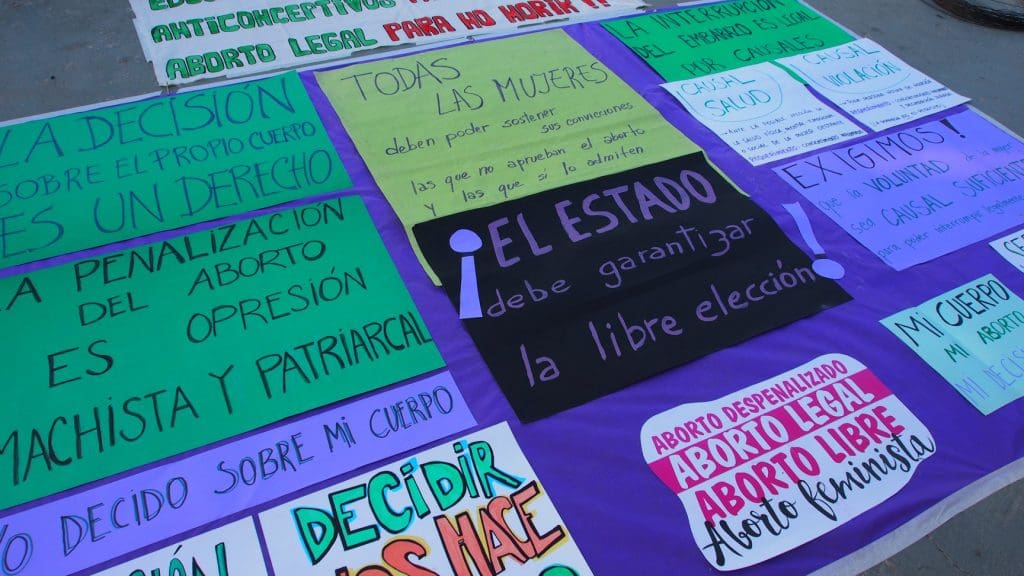 ANTICONCEPTIVOS
ABORTO LEGAL PARA NO MORIR !!
LA DECISIÓN
SOBRE EL PROPIO CUERPO
ES UN DERECHO
LA PENALIZACIÓN
DEL ABORTO
ES OPRESIÓN
MACHISTA Y PATRIARCAL
YO DECIDO SOBRE MI CUERPO
DECIDIR
NOS HACE
TODAS
LAS MUJERES
deben poder sostener
sus convicciones
las que no aprueban el aborto
y las que si lo admiten
y
¡EL ESTADO
debe garantizar
la libre elección!
LA INTERRUPCIÓN
DEL EMBARAZO ES LEGAL
POR CAUSALES
CAUSAL
SALUD
CAUSAL
VIOLACIÓN
EXIGIMOS!
Que la VOLUNTAD de la mujer
sea CAUSAL SUFICIENTE
para poder interrumpir legalmente
MI CUERPO
MI ABORTO
MI DECISI
ABORTO DESPENALIZADO
ABORTO LEGAL
ABORTO LIBRE
Aborto feminista